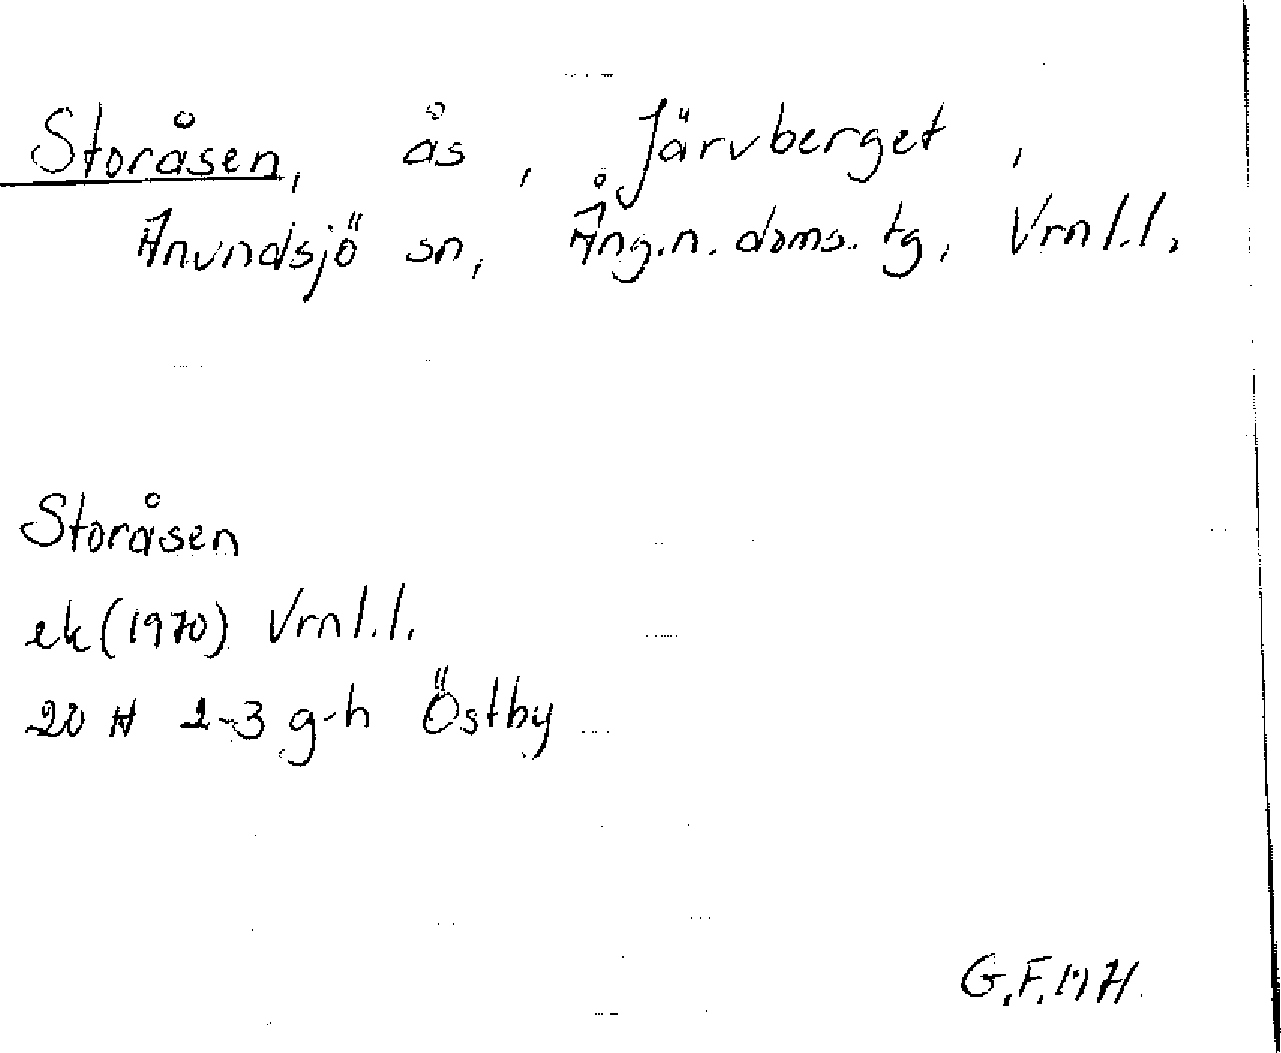 Storåsen, ås, Järvberget,
Anundsjö sn, Ång.n. doms. tg, Vrnl.l.
Storåsen
ek (1970) Vrnl.l.
20 H 2-3 g-h Östby